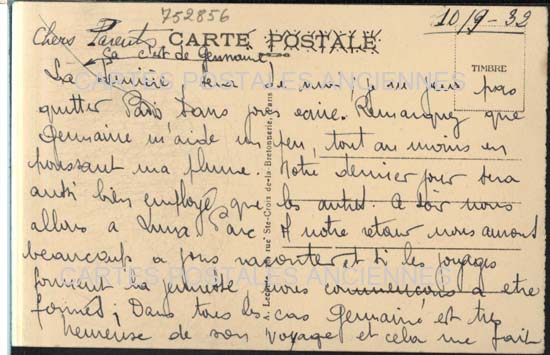 752856
10/9-32
Chers Parents
CARTE POSTALE
ça c'est de Germaine!
TIMBRE
La dernière, sera ! Je ne peux pas
quitter Paris sans vous écrire. Remarquez que
Germaine m'aide un peu, tout au moins en
poussant ma plume. Notre dernier jour sera
aussi bien employé que les autres. A soir nous
allons a Luna Parc. A notre retour nous aurons
beaucoup a vous raconter et si les voyages
forment la jeunesse nous commençons a etre
formés; Dans tous les cas Germaine est très
heureuse de son voyage et cela me fait
CARTES POSTALES ANCIENNES
CARTES POSTALES ANCIENNES
rue Ste-Croix-de-la-Bretonnerie, Paris